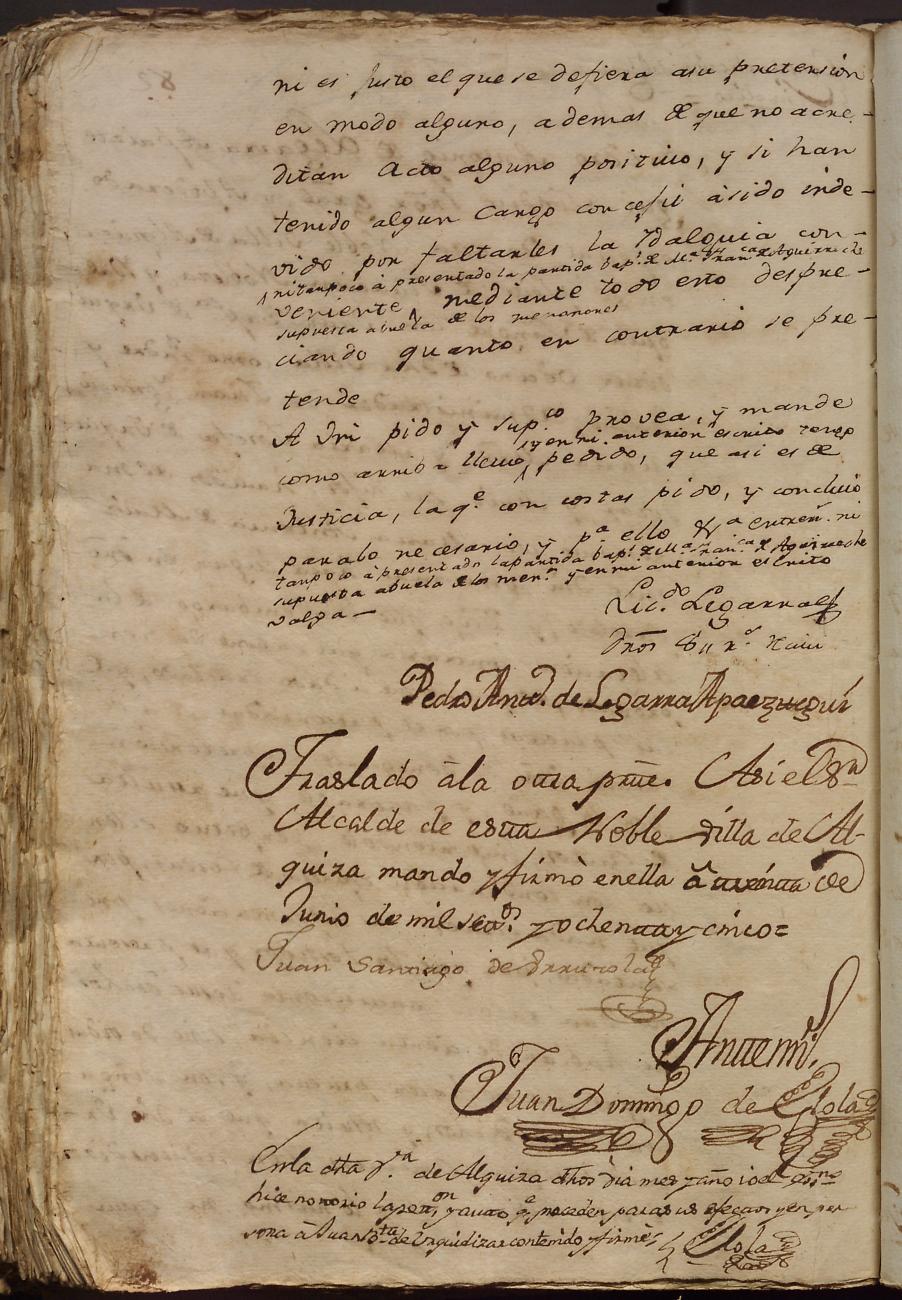 ni es justo el que se defiera a su pretension
en modo alguno, ademas de que no acre-
ditan Acto alguno positivo, y si han
tenido algun Cargo concejil à sido inde-
vido por faltarles la Ydalguia con-
ni tampoco à presentado la partida bap.l de M.a Fran.ca de Aguirreche
veniente, mediante todo esto despre-
supuesta abuela de los menores
ciando quanto en contrario se pre-
tende
A Vm pido y sup.co provea, y mande
y en mi anterior escrito tengo
como arriba llevo, pedido, que asi es de
Justicia, la q.e con costas pido, y concluio
para lo necesario, y p.a ello &.a entrerr. ni
tampoco à presentado la partida bap.l de M.a Fran.ca de Aguirreche
supuesta abuela de los men.s y en mi anterior escrito
valga—
Lic.do Legarra
Pedro Ant.o de Legarra Apaezteguí
Traslado à la otra parte. Asi el S.r
Alcalde de esta Noble Villa de Al-
quiza mando y firmò en ella à treinta de
Junio de mil setz.os y ochenta y cinco=
Juan Santiago de Irrazola
Ante mi,
Juan Domingo de Elola
En la dha V.a de Alquiza dhos dia mes y año io el ess.no
hice notorio la petiz.on y auto q.e preceden para sus efectos y en per
sona à Juan Bta de Urquidizar contenido y firmè
Elola